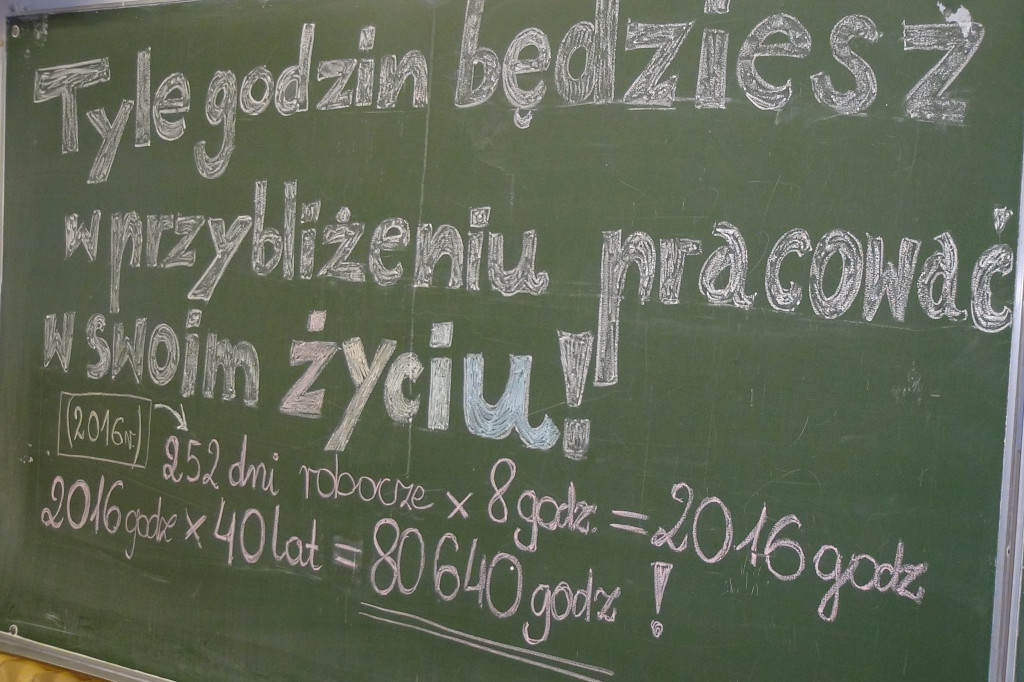 Tyle godzin będziesz
w przybliżeniu pracować
w swoim życiu!
(2016r.)
252 dni robocze × 8 godz. = 2016 godz
2016 godz × 40 lat = 80640 godz!